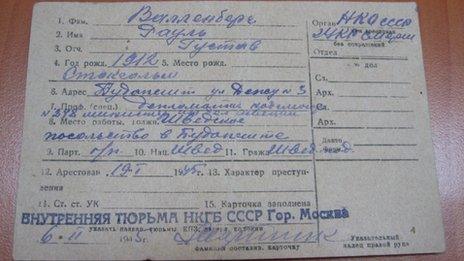 1. Фам. Валленберг
2. Имя Рауль
3. Отч. Густав
4. Год рожд. 1912 5. Место рожд.
Стокгольм
6. Адрес Будапешт ул
7. Проф. (спец.) дипломатич
8. Место работы, долж. Шведское
посольство в Будапеште
9. Парт. б/п 10. Нац. Швед 11. Гражд. Швед
12. Арестован 19-I 1945 г. 13. Характер преступ-
ления
14. Ст. ст. УК 15. Карточка заполнена
ВНУТРЕННЯЯ ТЮРЬМА НКГБ СССР Гор. Москва
6-II 1945 г.
фамилия составив. карточку
Орган НКО СССР
СМЕРШ
без сокращений
Отдел
Сл.
Арх.
Сл.
Арх.
Указательный
палец правой руки